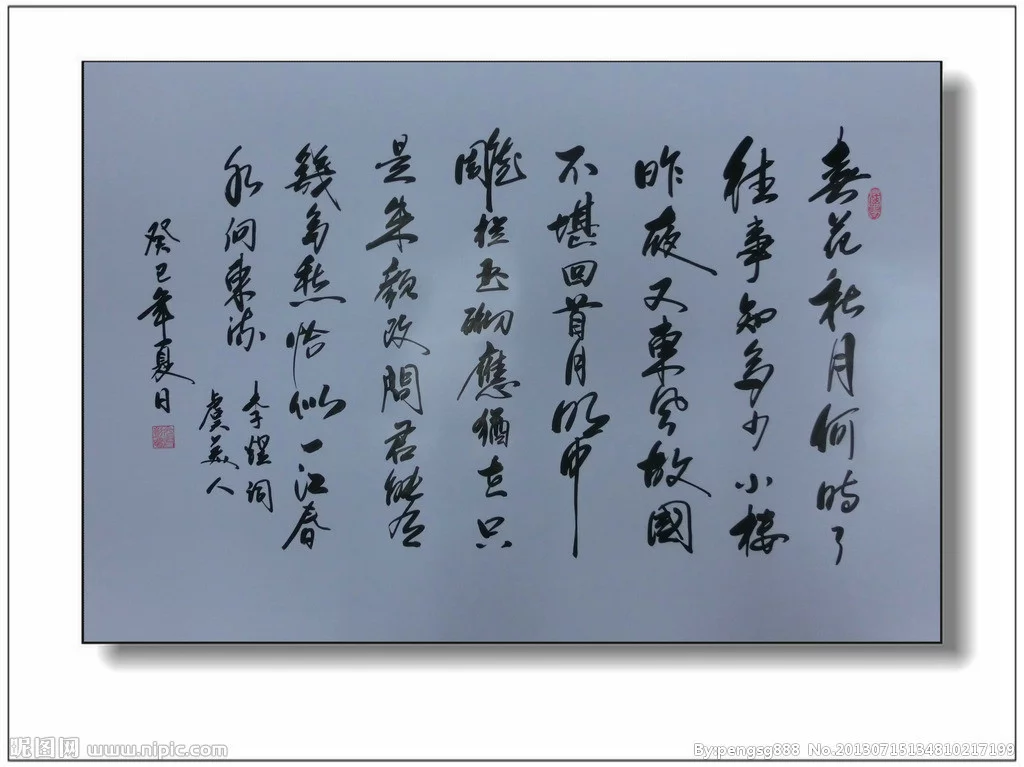 春花秋月何時了
往事知多少小樓
昨夜又東風故國
不堪回首月明中
雕栏玉砌應猶在只
是朱顏改問君能有
幾多愁恰似一江春
水向東流
李煜詞
虞美人
癸巳年夏日
昵图网 www.nipic.com
Bypengsg888 No.20130715134810217199